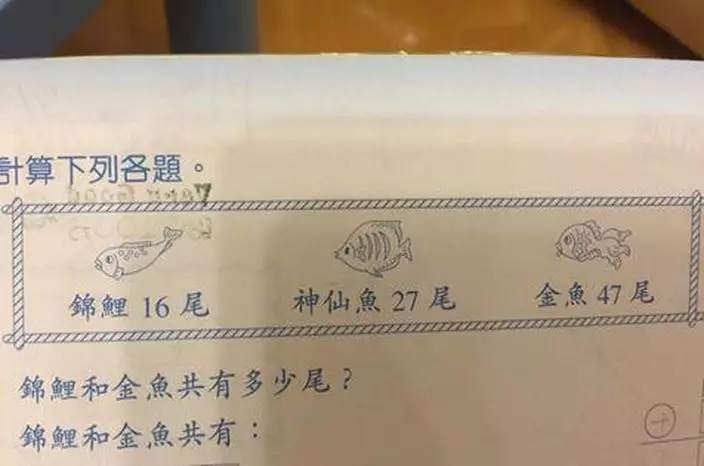 計算下列各題。
錦鯉 16 尾 神仙魚 27 尾 金魚 47 尾
錦鯉和金魚共有多少尾？
錦鯉和金魚共有：
+